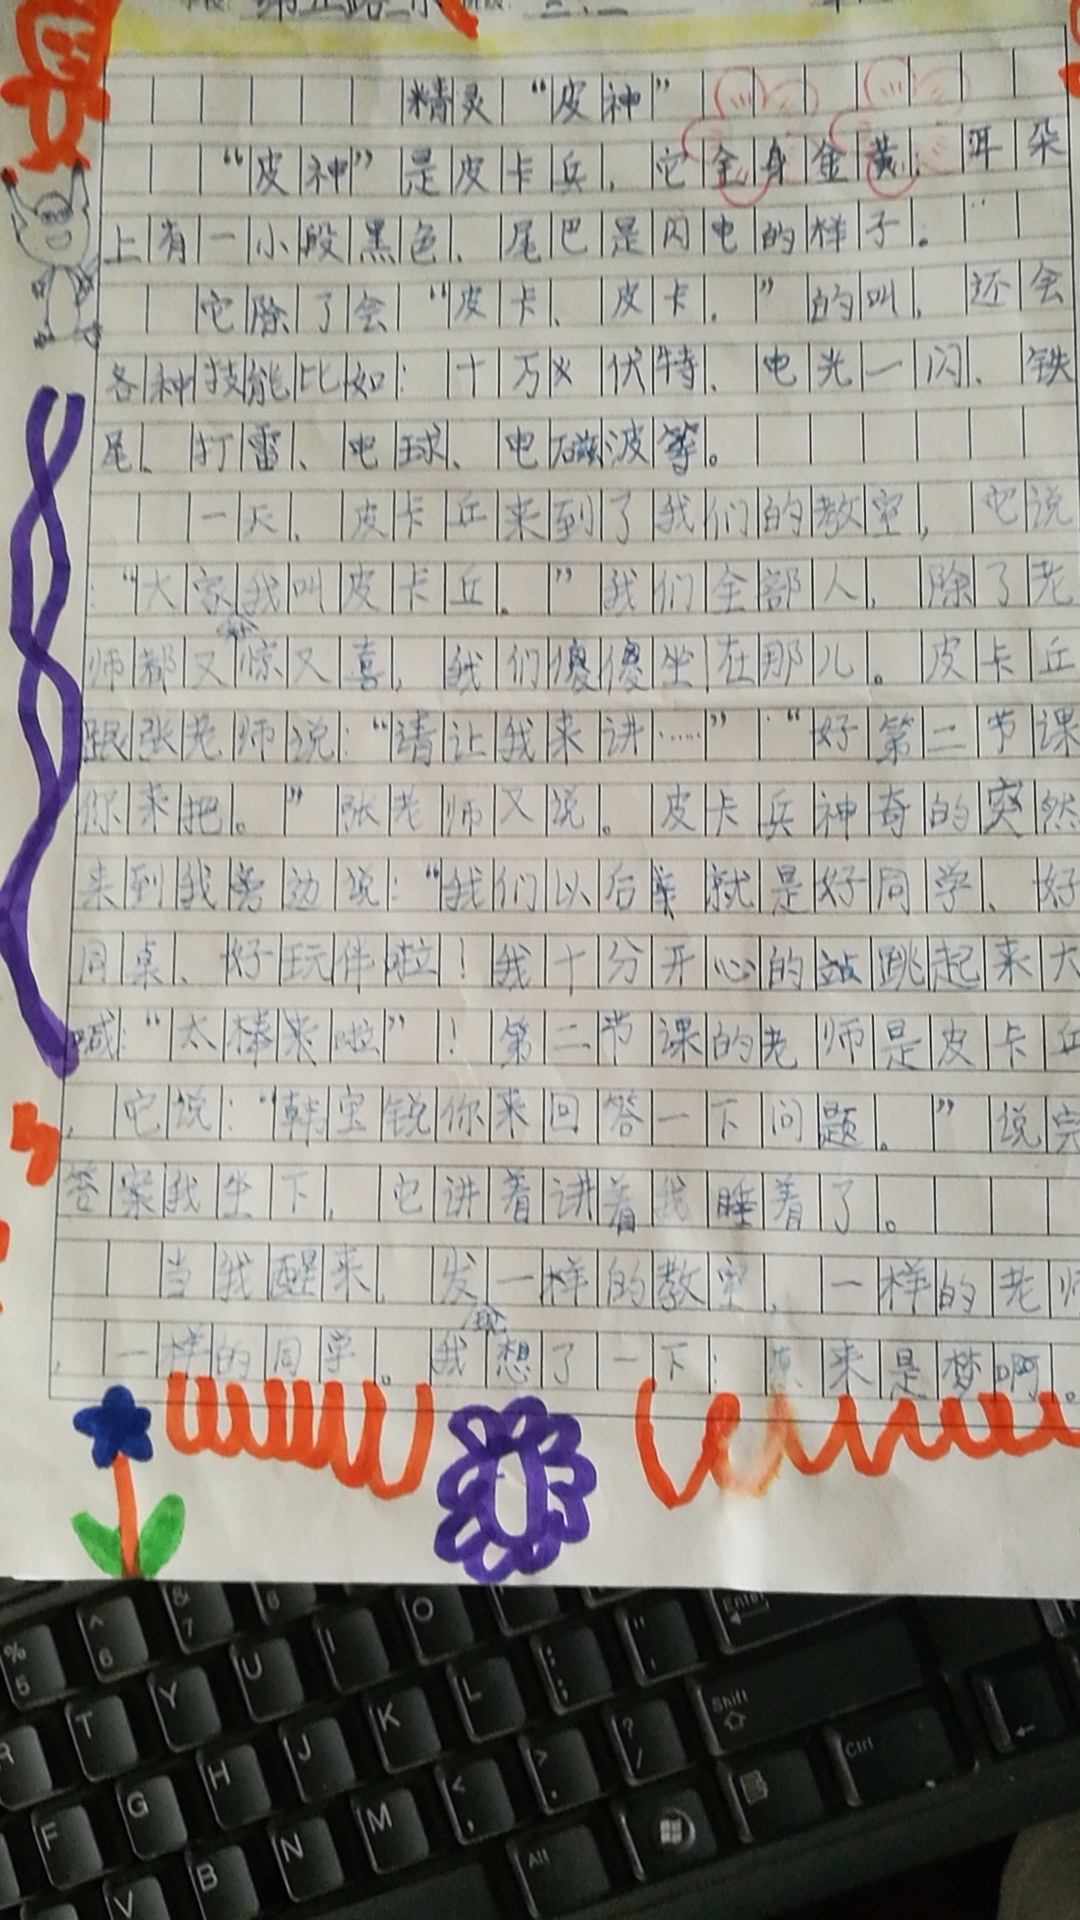 精灵“皮神”
“皮神”是皮卡兵，它全身金黄，耳朵
上有一小段黑色、尾巴是闪电的样子。
它除了会“皮卡、皮卡，”的叫，还会
各种技能比如：十万伏特、电光一闪、铁
尾、打雷、电球、电磁波等。
一天，皮卡丘来到了我们的教室，它说
：“大家我叫皮卡丘。”我们全部人，除了老
师都又惊又喜，我们傻傻坐在那儿。皮卡丘
跟张老师说：“请让我来讲……”“好第二节课
你来把。”张老师又说。皮卡兵神奇的突然
来到我旁边说：“我们以后就是好同学、好
同桌、好玩伴啦！我十分开心的站跳起来大
喊：“太棒来啦”！第二节课的老师是皮卡丘
，它说：“韩宝锐你来回答一下问题。”说完
答案我坐下，它讲着讲着我睡着了。
当我醒来，发现一样的教室，一样的老师
，一样的同学。我想了一下：原来是梦啊。
% 5
^ 6
& 7
8
O
Enter
R
T
Y
U
I
K
L
: ;
" '
Shift
F
G
H
J
M
< ,
> .
? /
Ctrl
V
B
N
Alt